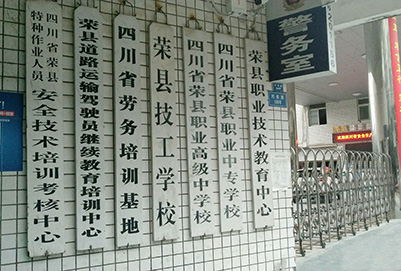 四川省荣县
特种作业人员
安全技术培训考核中心
荣县道路运输驾驶员继续教育培训中心
四川省劳务培训基地
荣县技工学校
四川省荣县职业高级中学校
四川省荣县职业中专学校
荣县职业技术教育中心
警务室